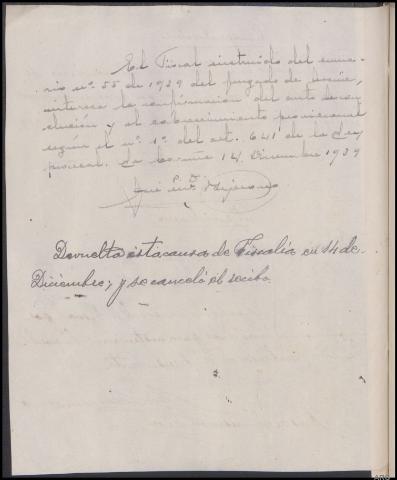 El Fiscal instruido del suma-
rio nº 55 de 1939 del juzgado de
interesa la confirmación del auto de con-
clusión y el sobreseimiento provisional
según el nº 1º del art. 641 de la Ley
procesal. La Coruña 14 Diciembre 1939
Devuelta esta causa de Fiscalía en 14 de
Diciembre; y se canceló el recibo.